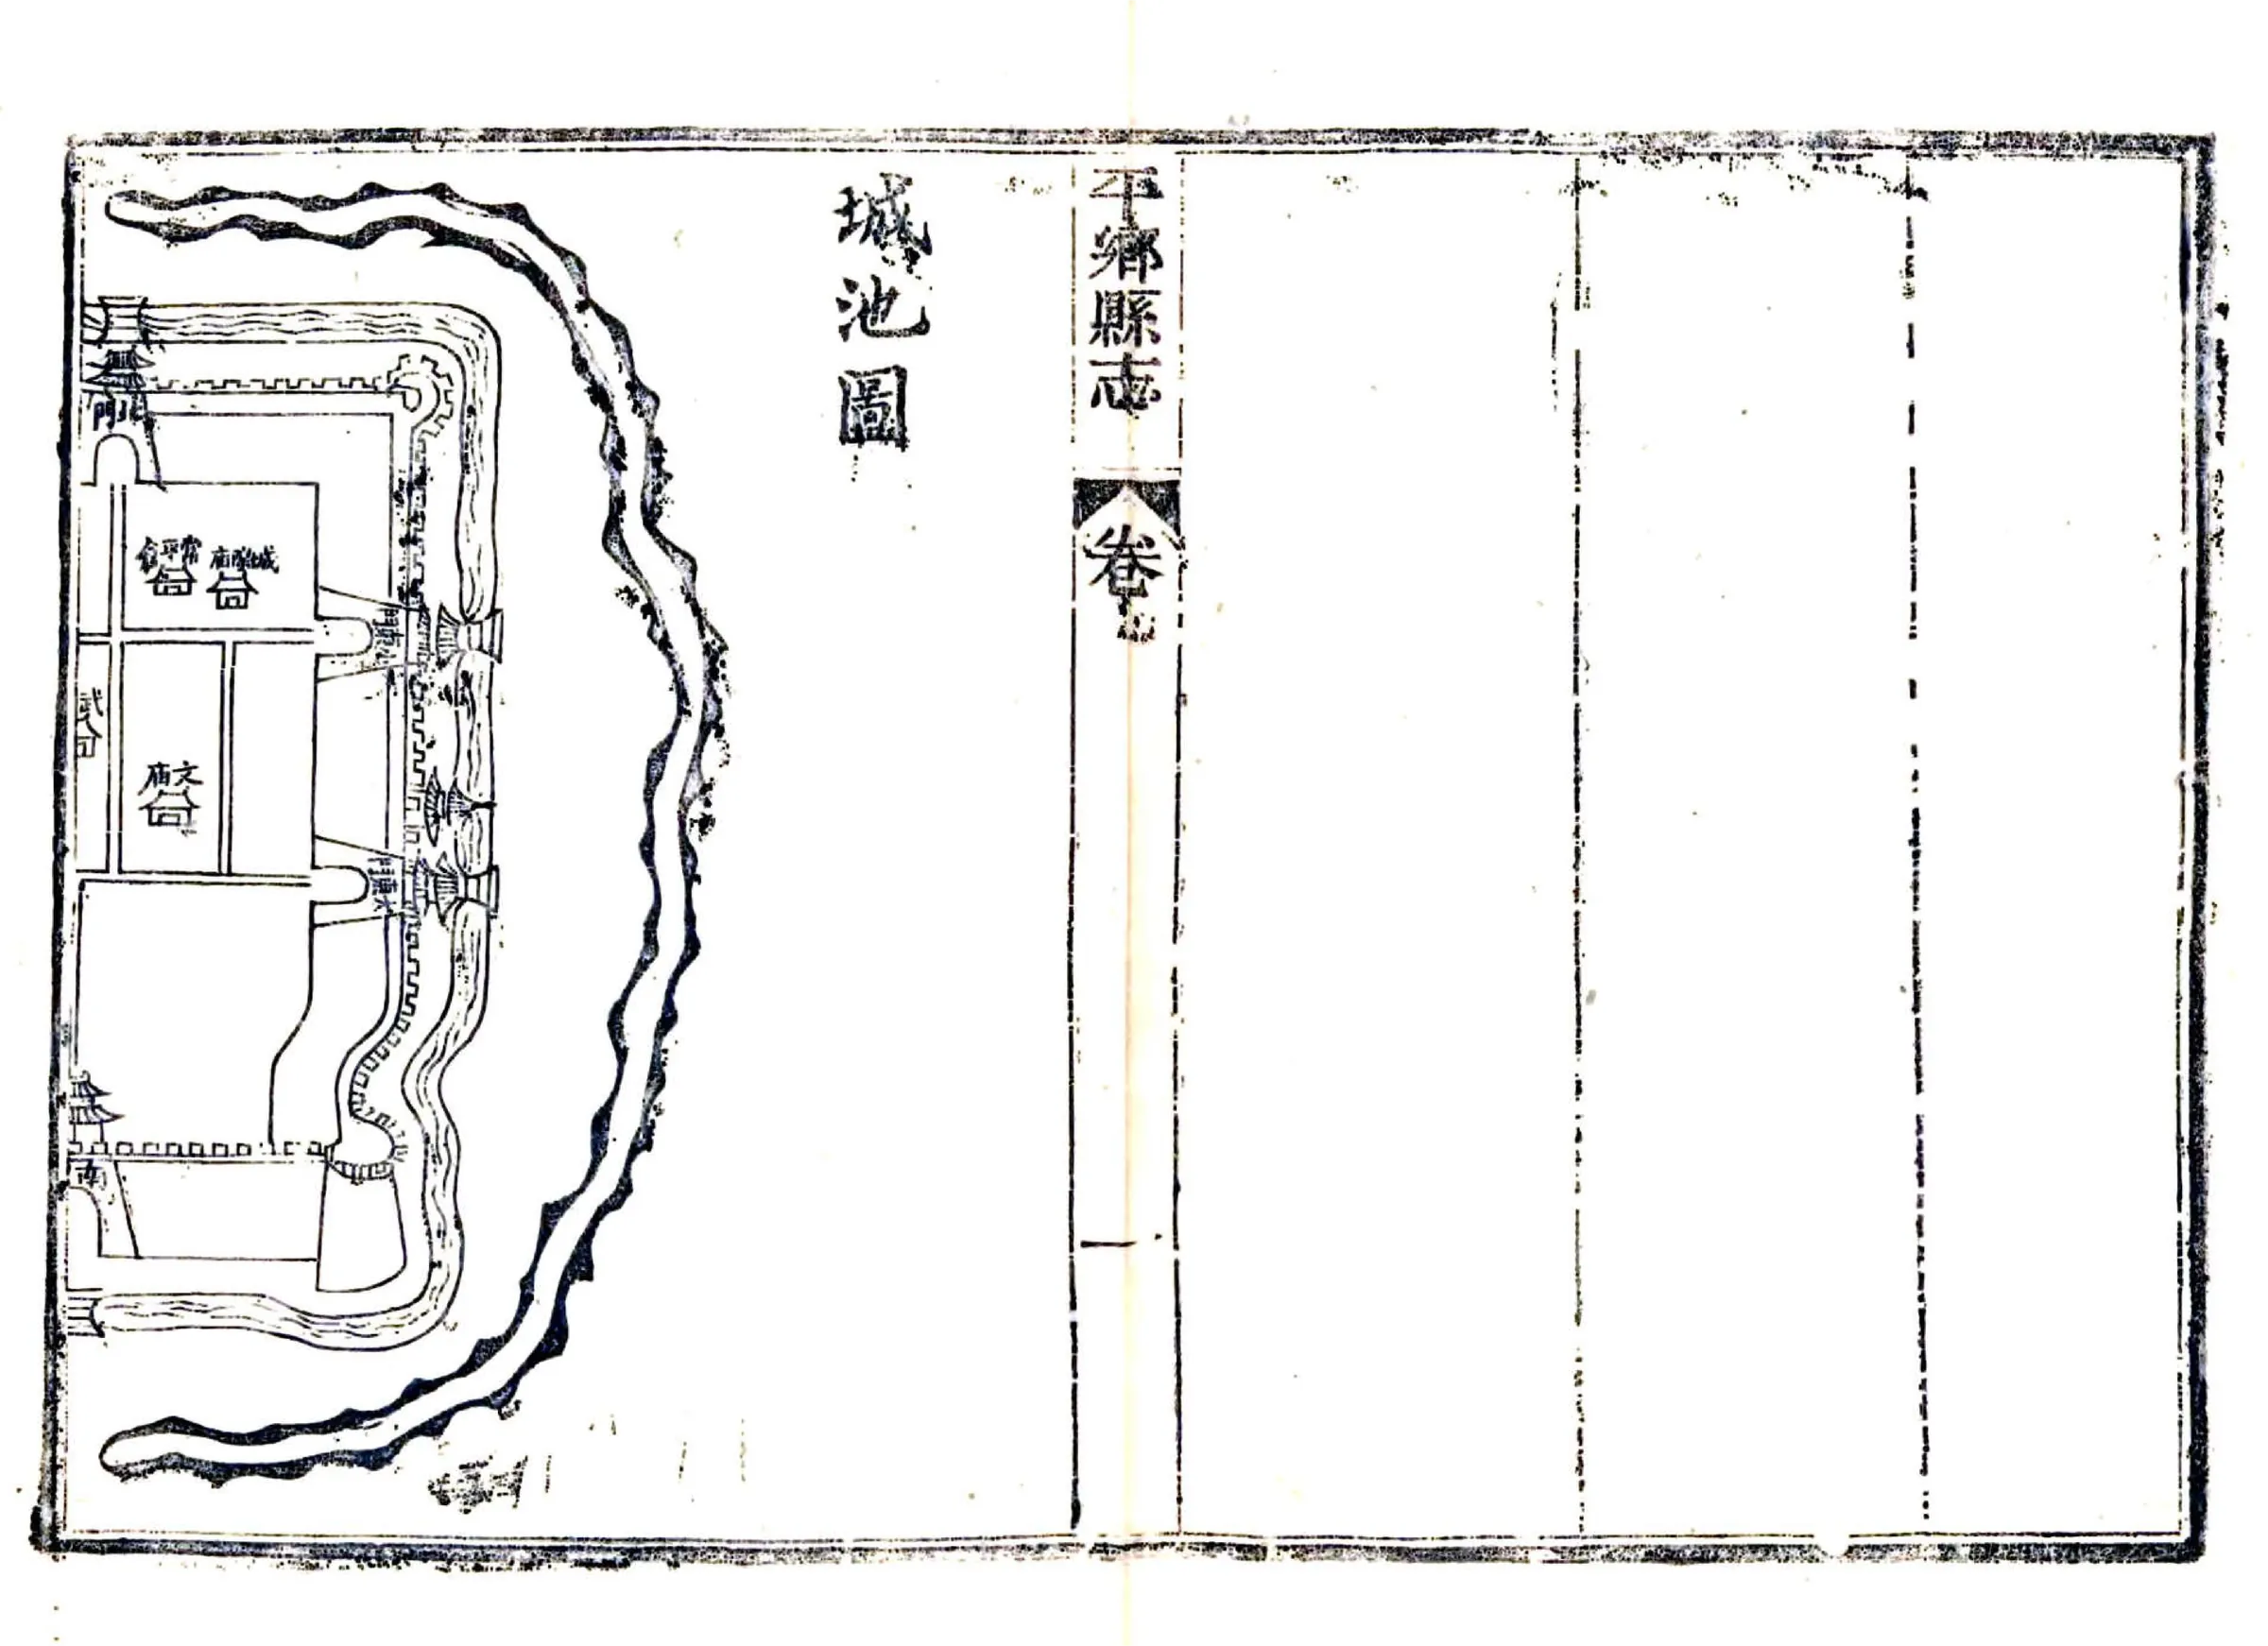 平鄉縣志
卷
一
城池圖
北門
城隍廟
常平倉
小東門
武
文廟
大東門
南